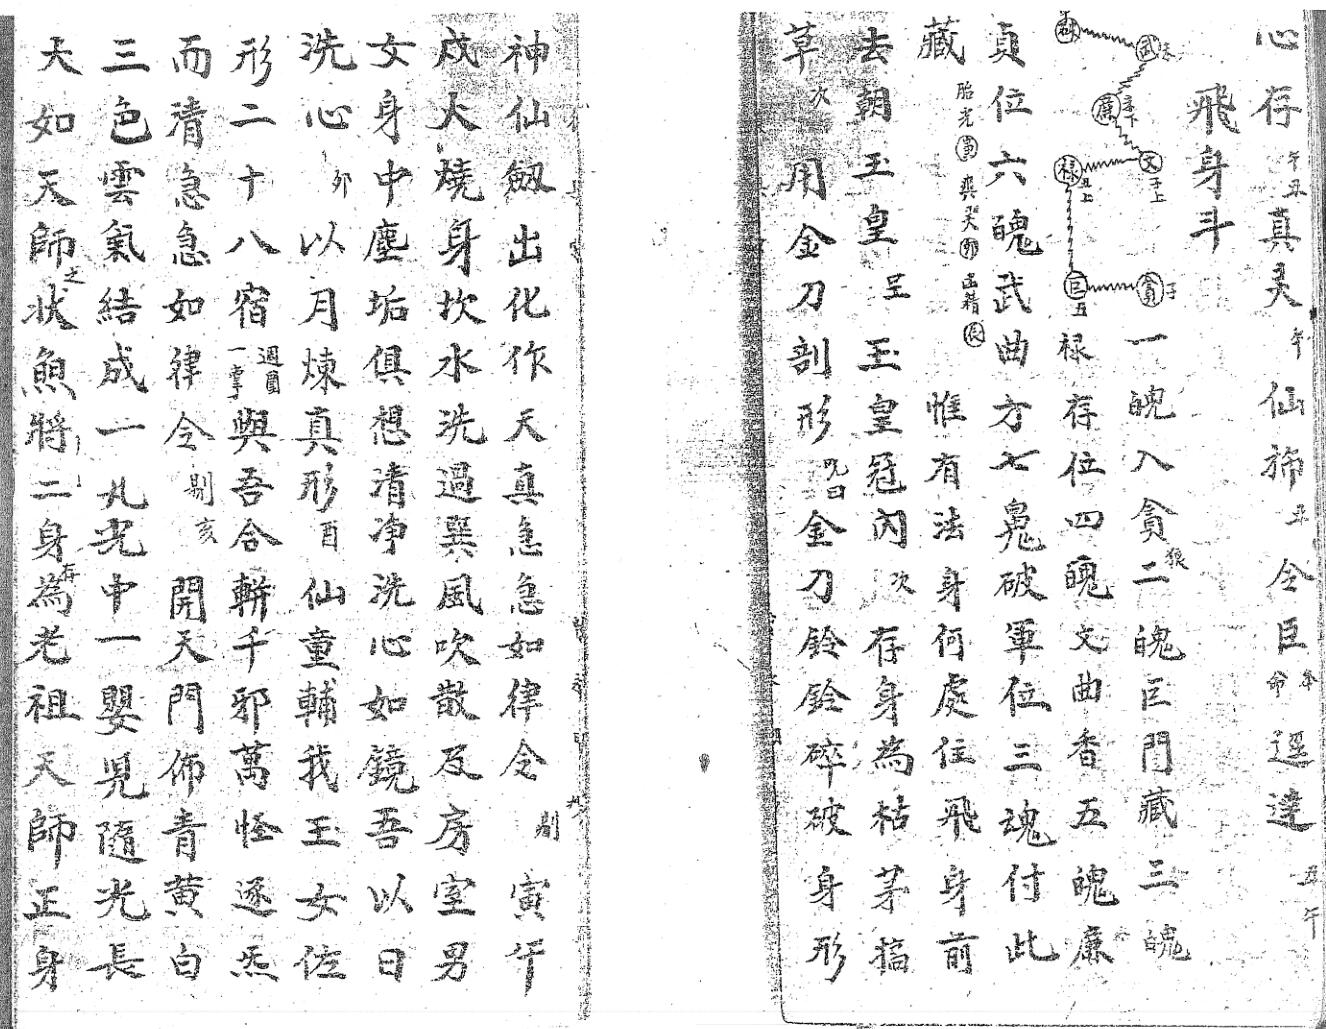 心存午丑真灵午仙旆丑令臣奉命逕達丑午
飛身斗
祿 武 廉 文 子上 祿 丑上 貪子 巨丑
一魄入貪狼二魄巨門藏三魄
祿存位四魄文曲香五魄廉
貞位六魄武曲方七鬼破軍位三魂付此
藏胎光寅爽灵卯幽精辰 惟有法身何處住飛身前
去朝玉皇呈玉皇冠內次存身為枯茅搞
草次用金刀剖形咒曰金刀鈴鈴碎破身形
神仙劔出化作天真急急如律令剔寅午
戌火燒身坎水洗過巽風吹散及房室男
女身中塵垢俱想清净洗心如鏡吾以日
洗心卯以月煉真形酉仙童輔我玉女佐
形二十八宿週圓一掌與吾合輧千邪萬怪逐炁
而清急急如律令剔亥開天門佈青黃白
三色雲氣結成一丸光中一嬰兒隨光長
大如天師之狀魚將二身存為老祖天師正身